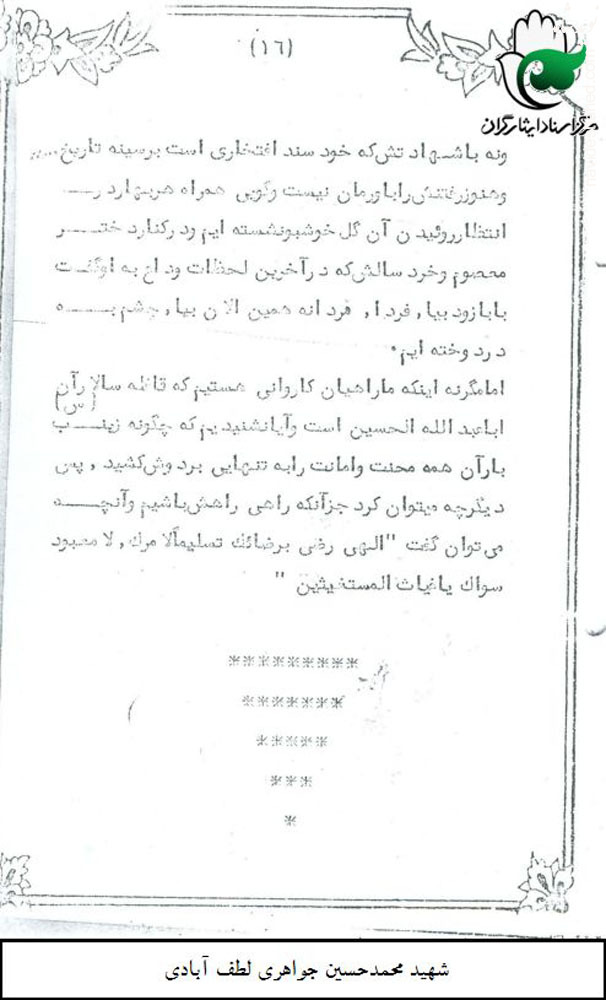 (۱۶)
مرکز اسناد ایثارگران
ونه باشهادتش که خود سند افتخاری است برسینه تاریخ.....
وهنوز رفتنش راباورمان نیست وگویی همراه هربهارد ر
انتظار روئیدن آن گل خوشبونشسته ایم ود رکنارد ختـــر
معصوم وخرد سالش که د رآخرین لحظات ود اع به اوگفت
بابازود بیا, فرد ا, فرد انه همین الان بیا, چشم بـــه
د رد وخته ایم.
امامگرنه اینکه ماراهیان کاروانی هستیم که قافله سالارآن
اباعبد الله الحسین است وآیانشنید یم که چگونه زینـــب (س)
بارآن همه محنت وامانت رابه تنهایی برد وش کشید , پس
د یگرچه میتوان کرد جزآنکه راهی راهش باشیم وآنچـــه
می توان گفت "الهی رضی برضائک تسلیماًلا مرک, لا معبود
سواك یاغیاث المستغیثین "
*********
*******
*****
***
*
شهید محمدحسین جواهری لطف آبادی